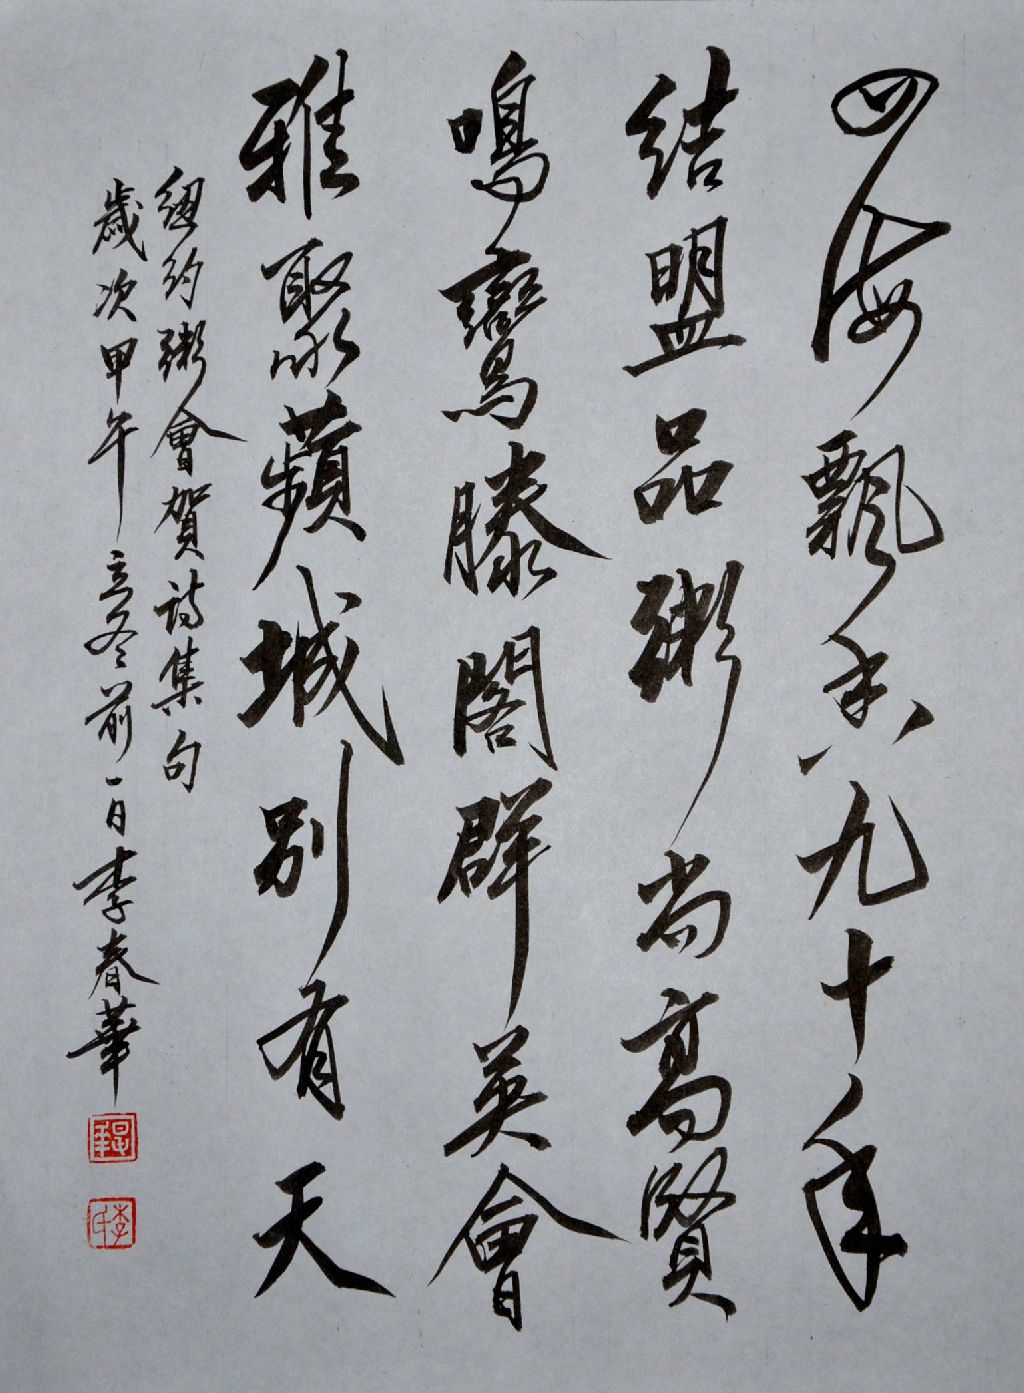 四海飄香九十年
結盟品粥尚高賢
鳴鸞滕閣群英會
雅聚蘋城別有天
紐約粥會賀詩集句
歲次甲午立冬前一日李春華
李氏